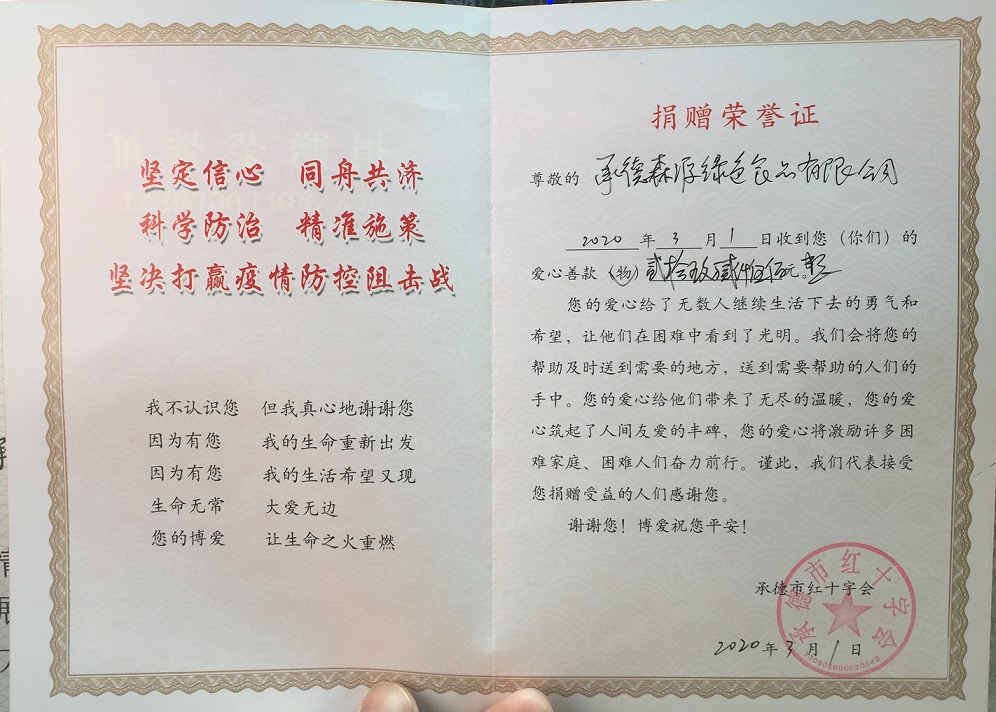 坚定信心 同舟共济
科学防治 精准施策
坚决打赢疫情防控阻击战
我不认识您 但我真心地谢谢您
因为有您 我的生命重新出发
因为有您 我的生活希望又现
生命无常 大爱无边
您的博爱 让生命之火重燃
捐赠荣誉证
尊敬的 承德森源绿色食品有限公司
2020 年 3 月 1 日收到您（你们）的
爱心善款（物）贰拾玖 仟伍佰元
您的爱心给了无数人继续生活下去的勇气和
希望，让他们在困难中看到了光明。我们会将您的
帮助及时送到需要的地方，送到需要帮助的人们的
手中。您的爱心给他们带来了无尽的温暖，您的爱
心筑起了人间友爱的丰碑，您的爱心将激励许多困
难家庭、困难人们奋力前行。谨此，我们代表接受
您捐赠受益的人们感谢您。
谢谢您！博爱祝您平安！
承德市红十字会
承德市红十字会
2020 年 3 月 1 日